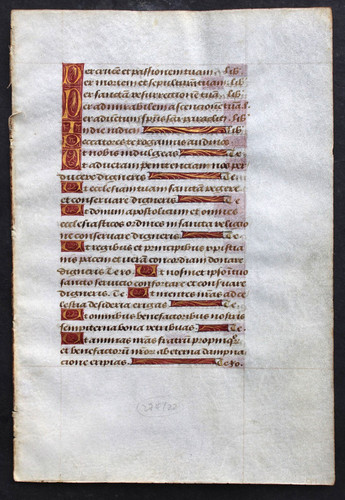 Per crucē et passionem tuam. Lib
Per mortem et sepulturā tuam. Lib
Per sanctā resurrectionē tuā. Lib
Per admirabilem ascēsionē tuā
Per aductum sp̄us sc̄i paracliti. Lib
In die iudicii
Peccatores te rogamus audi nos
Ut nobis indulgeas Te
Ut ad veram penitenciam nos per
ducere digneris Te
Ut ecclesiam tuam sanctā regere
et conservare digneris Te
Ut domum apostolicum et omnes
ecclesiasticos ordines in sancta religio
ne conservare digneris Te
Ut regibus et principibus xp̄istia
nis pacem et verā concordiam donare
digneris Te ro. Ut nosmet ip̄os in tuo
sancto servicio confortare et cōservare
digneris. Te Ut mentes n̄ras ad ce
lestia desideria erigas Te
Ut omnibus benefactoribus nostris
sempiterna bona retribuas Te
Ut animas n̄ras fratrū propinqɔʒ
et benefactorū n̄ror ab eterna dampna
cione eripias Te ro.